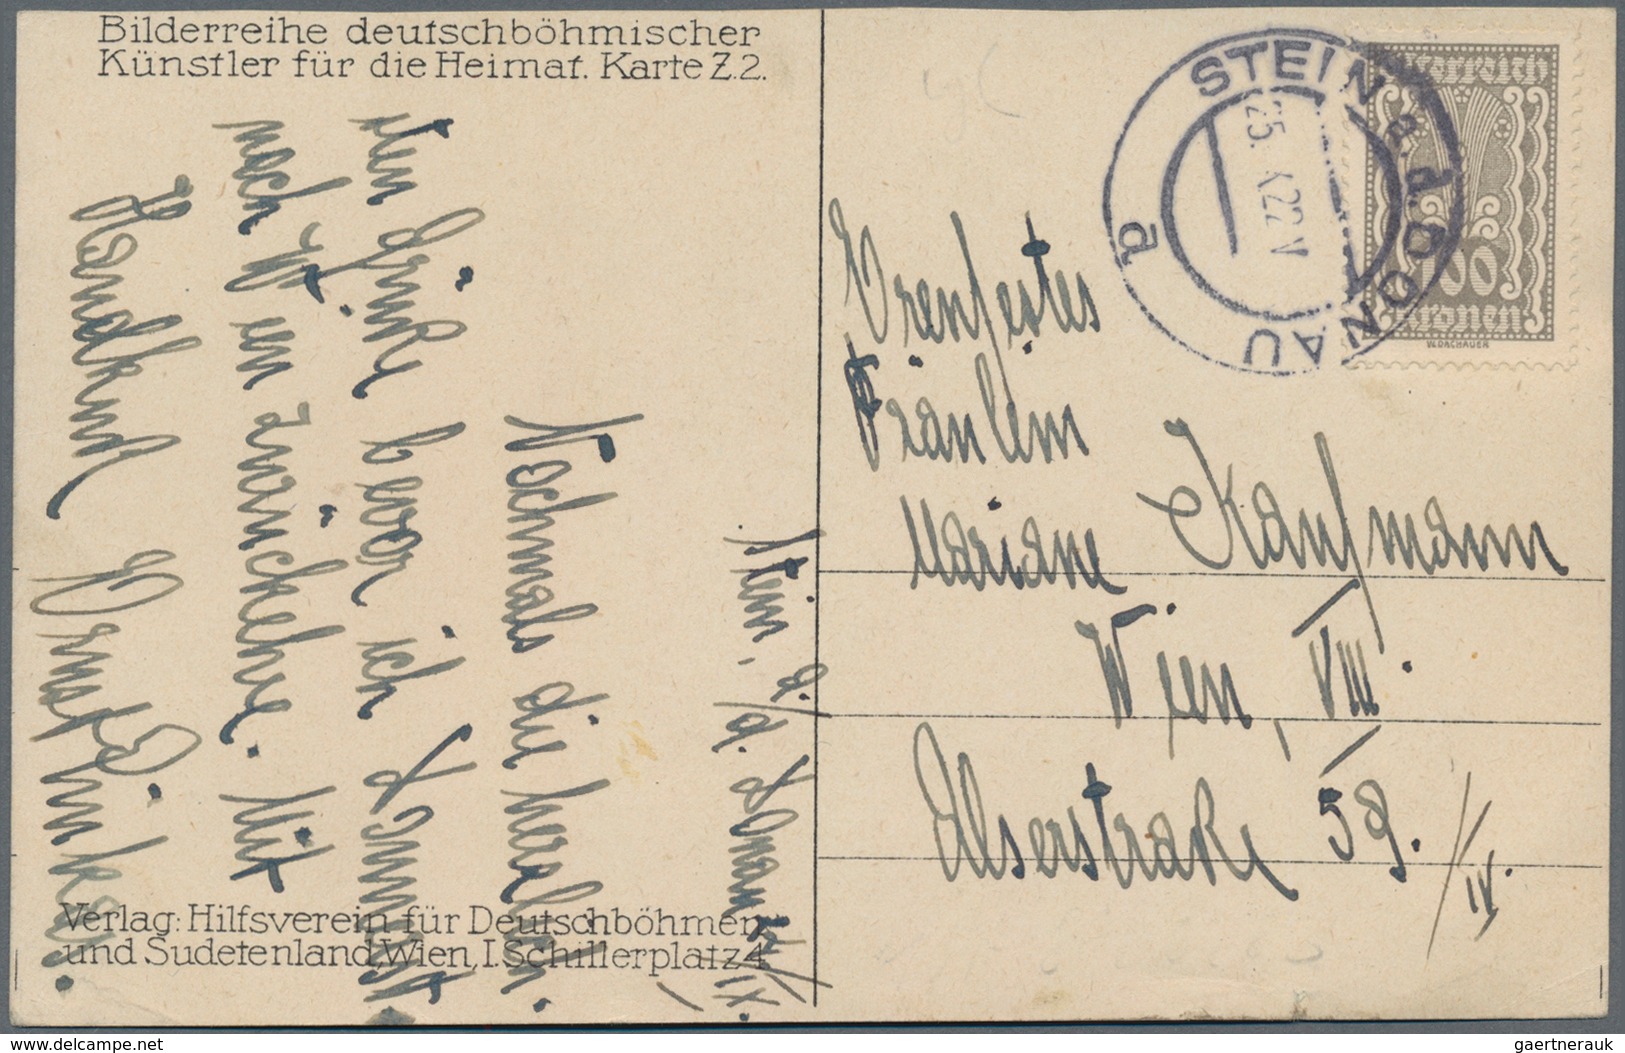 Bilderreihe deutschböhmischer
Künstler für die Heimat. Karte Z.2.
Stein, a./d. Donau /IX.
Nochmals die herzlich-
sten Grüße bevor ich
nach Wien zurückkehre. Mit
Handkuß Ernst
Verlag: Hilfsverein für Deutschböhmen
und Sudetenland, Wien, I. Schillerplatz 4
STEIN a.d. DONAU
a
25. X 22 V
Österreich
100
Kronen
W.DACHAUER
Fräulein
Mariane Kaufmann
Wien, VIII.
Alserstraße 59. /IV.
gaertnerauk